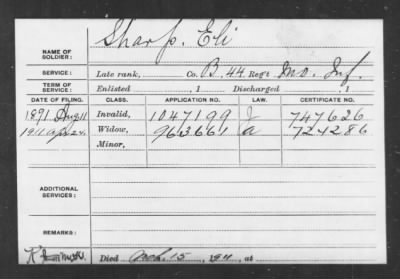 NAME OF SOLDIER: Sharp, Eli
SERVICE: Late rank, Co. B, 44 Reg't Mo. Inf.
TERM OF SERVICE: Enlisted , 1 Discharged , 1
DATE OF FILING. CLASS. APPLICATION NO. LAW. CERTIFICATE NO.
1891 Aug 11 Invalid, 1047199 J 747626
1911 Apr 24 Widow, 963661 a 724286
Minor,
ADDITIONAL SERVICES:
REMARKS:
Died 15, 1911, at